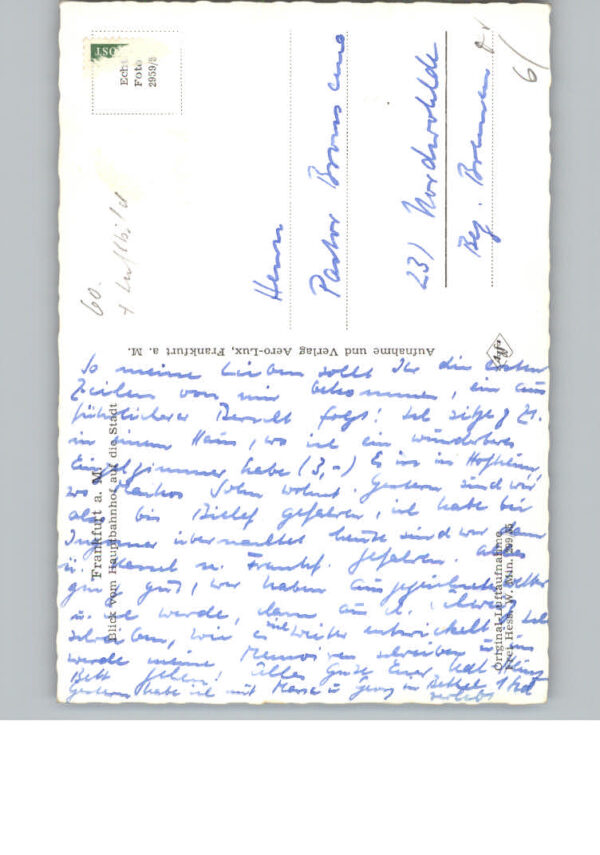 POST
Echt
Foto
2959/5
60.
+ Luftbild
6/
Herrn
Pastor
231 Nordwohlde
Bez. Bremen
Aufnahme und Verlag Aero-Lux, Frankfurt a. M.
Frankfurt a. M.
Blick vom Hauptbahnhof auf die Stadt
Original-Luftaufnahme
So meine Lieben sollt Ihr die ersten
Zeilen von mir bekommen, ein aus
führlicherer Bericht folgt! Ich sitze z. Zt.
in einem Haus, wo ich ein wunderbares
Einzelzimmer habe (3,-) Es ist in Hofheim,
wo Sohn wohnt. Gestern sind wir
bis Bielef. gefahren, ich habe bei
übernachtet heute sind wir dann
ü. Kassel n. Frankf. gefahren. alles
ging gut, wir haben
u. ich werde, dann
wie es sich weiter entwickelt. Ich
werde meine Memoiren schreiben u. ins
Bett gehen! Alles Gute Eure
Gestern habe ich mit Maria u. Georg in Bethel 1 Std
verlebt